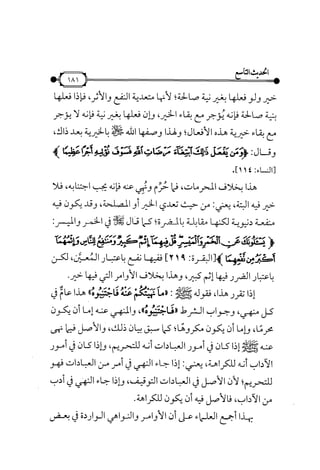 الحديث التاسع
١٨١
خير ولو فعلها بغير نية صالحة؛ لأنها متعدية النفع والأثر، فإذا فعلها
بنية صالحة فإنه يُؤجر مع بقاء الخير، وإن فعلها بغير نية فإنه لا يؤجر
مع بقاء خيرية هذه الأفعال؛ ولهذا وصفها الله ﷻ بالخيرية بعد ذلك،
وقال: ﴿وَمَن يَفْعَلْ ذَٰلِكَ ابْتِغَاءَ مَرْضَاتِ اللَّهِ فَسَوْفَ نُؤْتِيهِ أَجْرًا عَظِيمًا﴾
[النساء: ١١٤].
هذا بخلاف المحرمات، فما حُرِّم ونُهي عنه فإنه يجب اجتنابه، فلا
خير فيه البتة، يعني: من حيث تعدي الخير أو المصلحة، وقد يكون فيه
منفعة دنيوية لكنها مقابلة بالمضرة؛ كما قال ﷻ في الخمر والميسر:
﴿يَسْأَلُونَكَ عَنِ الْخَمْرِ وَالْمَيْسِرِ قُلْ فِيهِمَا إِثْمٌ كَبِيرٌ وَمَنَافِعُ لِلنَّاسِ وَإِثْمُهُمَا
أَكْبَرُ مِن نَّفْعِهِمَا﴾ [البقرة: ٢١٩] ففيها نفع باعتبار المعيَّن، لكن
باعتبار الضرر فيها إثم كبير، وهذا بخلاف الأوامر التي فيها خير.
إذا تقرر هذا، فقوله ﷺ: «مَا نَهَيْتُكُمْ عَنْهُ فَاجْتَنِبُوهُ» هذا عامٌّ في
كل منهي، وجواب الشرط «فَاجْتَنِبُوهُ»، والمنهي عنه إما أن يكون
محرمًا، وإما أن يكون مكروهًا؛ كما سبق بيان ذلك، والأصل فيما نهى
عنه ﷺ إذا كان في أمور العبادات أنه للتحريم، وإذا كان في أمور
الآداب أنه للكراهة، يعني: إذا جاء النهي في أمر من العبادات فهو
للتحريم؛ لأن الأصل في العبادات التوقيف، وإذا جاء النهي في أدب
من الآداب، فالأصل فيه أن يكون للكراهة.
بهذا أجمع العلماء على أن الأوامر والنواهي الواردة في بعض